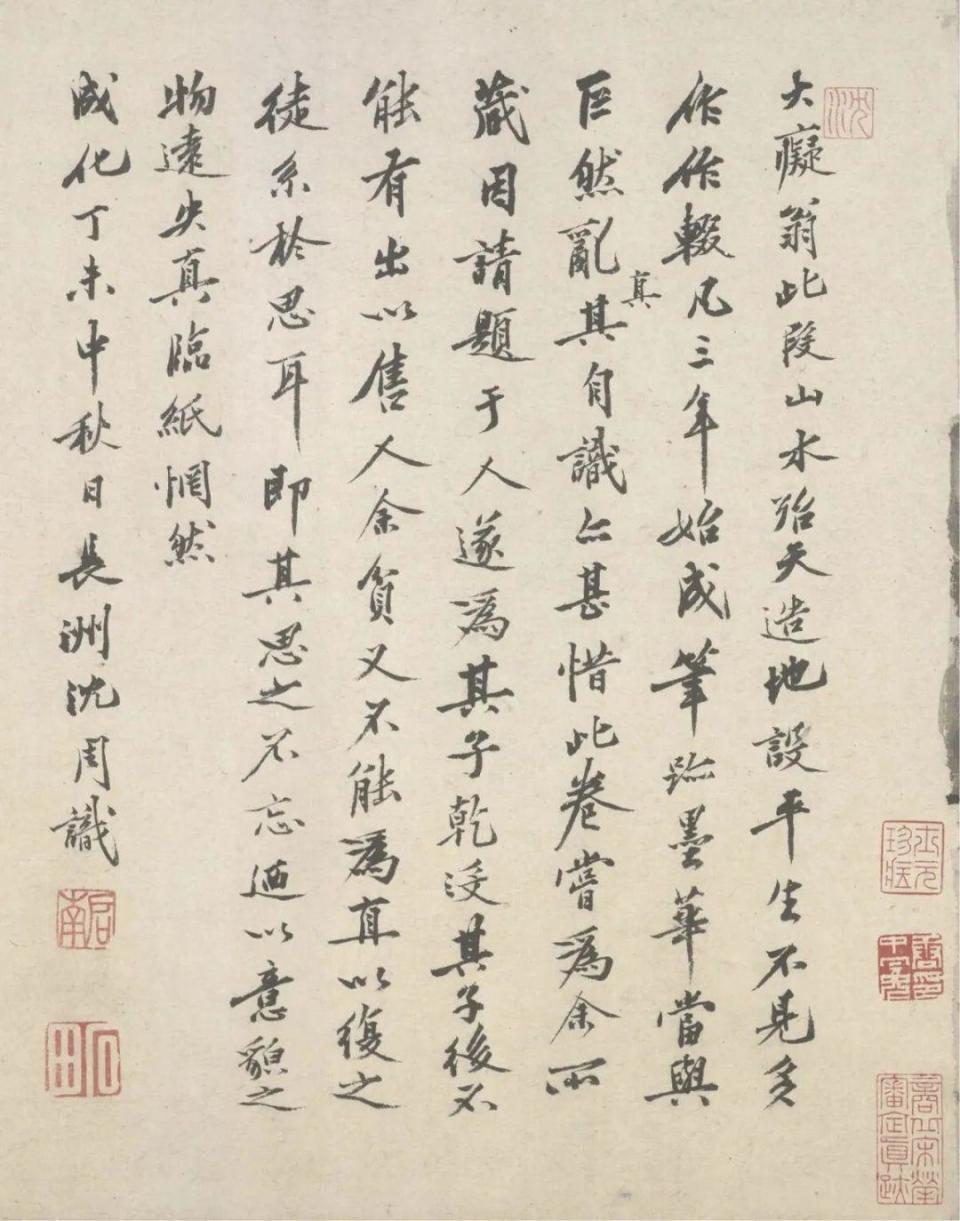 沈
大癡翁此段山水殆天造地設平生不見多
作作輟凡三年始成筆跡墨華當與
巨然亂真其自識亦甚惜此卷嘗為余所
藏因請題于人遂為其子乾沒其子後不
能有出以售人余貧又不能為直以復之
徒系於思耳即其思之不忘廼以意貌之
物遠失真臨紙惘然
成化丁未中秋日長洲沈周識
啟南
石田
商丘宋犖審定真跡